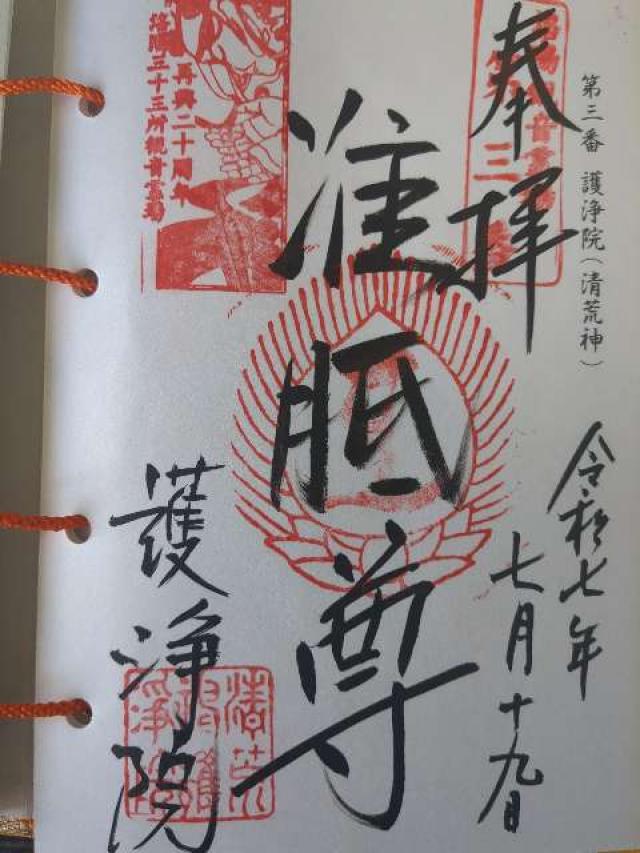 第三番 護浄院（清荒神）
奉拝
令和七年
七月十九日
准胝尊
護浄院
再興二十周年
洛陽三十三所観音霊場